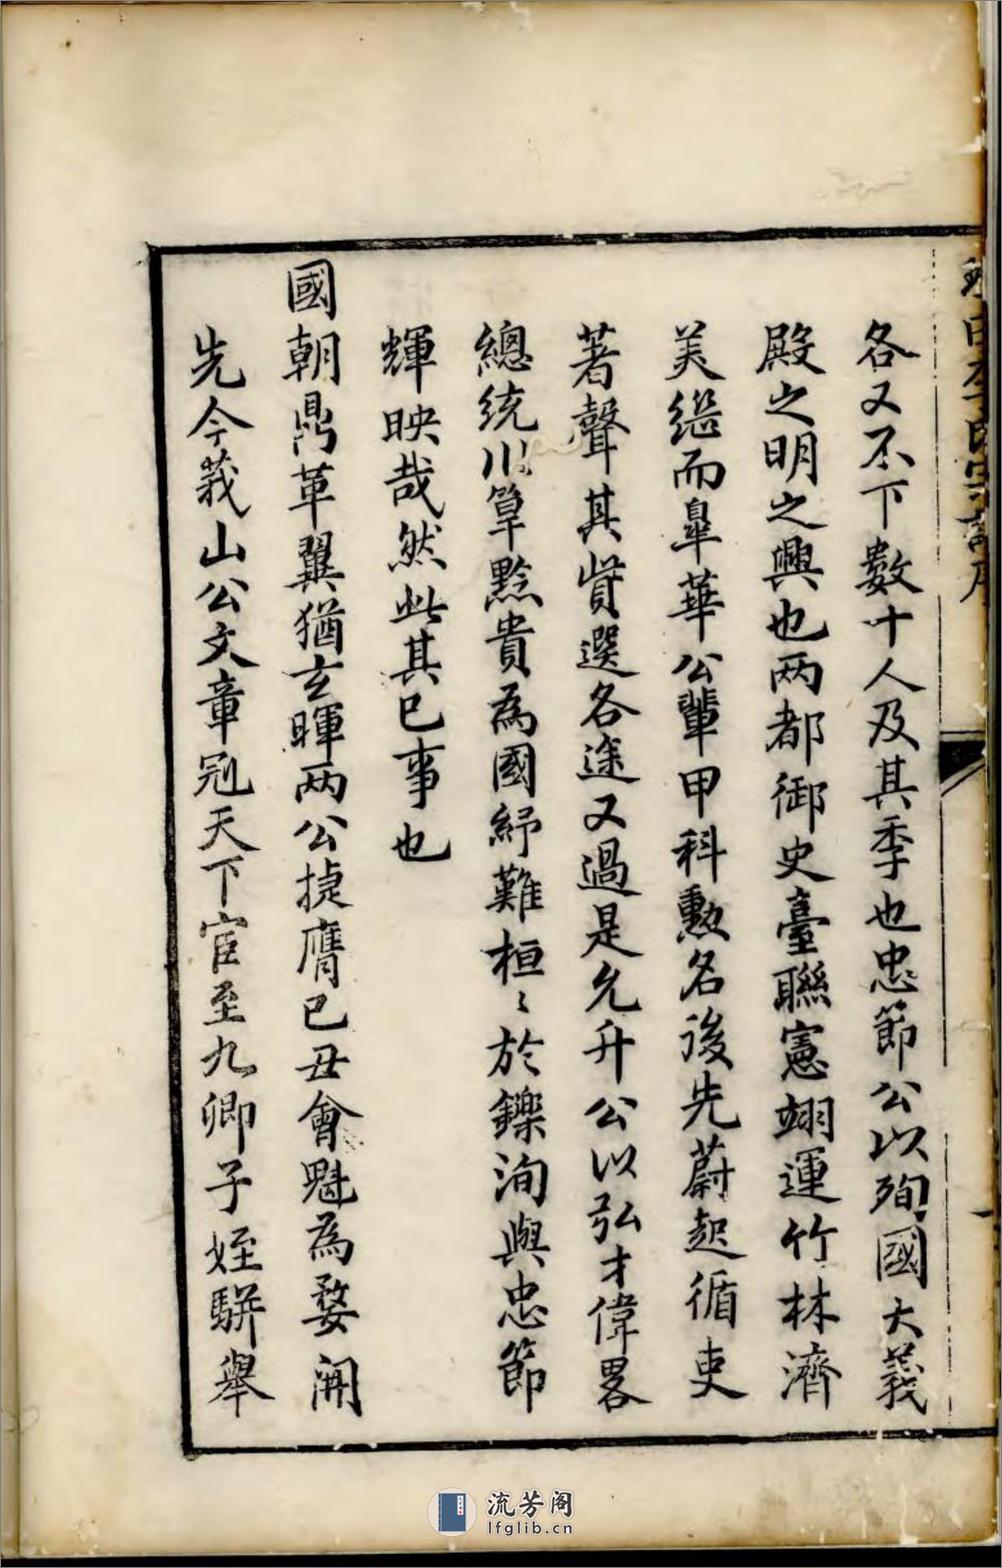 田李氏宗譜序
各又不下數十人及其季也忠節公以殉國大義
殿之明之興也两都御史臺聯憲翊運竹林濟
美継而臯華公輩甲科勲名後先蔚起循吏
著聲其貲選各途又過是允升公以弘才偉畧
總統川篁黔貴為國紓難桓〻於鑠洵與忠節
輝映哉然此其已事也
國朝鼎革翼猶玄暉两公捷膺已丑會魁為婺開
先今莪山公文章冠天下宦至九卿子姪駢舉
流芳阁
lfglib.cn